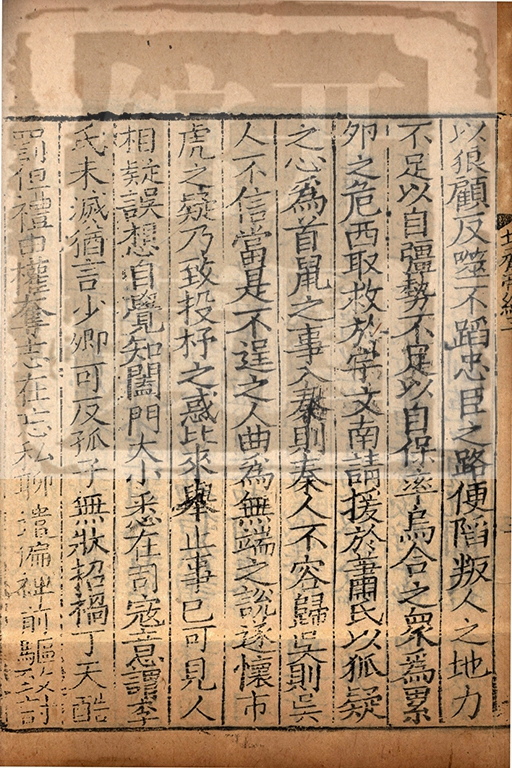 以狼顧反噬不蹈忠臣之路便陷叛人之地力
不足以自彊勢不足以自保率烏合之衆為累
夘之危西取救於宇文南請援於蕭氏以狐疑
之心為首鼠之事入秦則秦人不容歸吳則吳
人不信當是不逞之人曲為無端之說遂懷市
虎之疑乃致投杼之惑比來舉止事已可見人
相疑誤想自覺知闔門大小悉在司寇意謂李
氏未滅猶言少卿可反孤子無狀招禍丁天酷
罰但禮由權奪志在忘私聊遣偏裨前驅致討